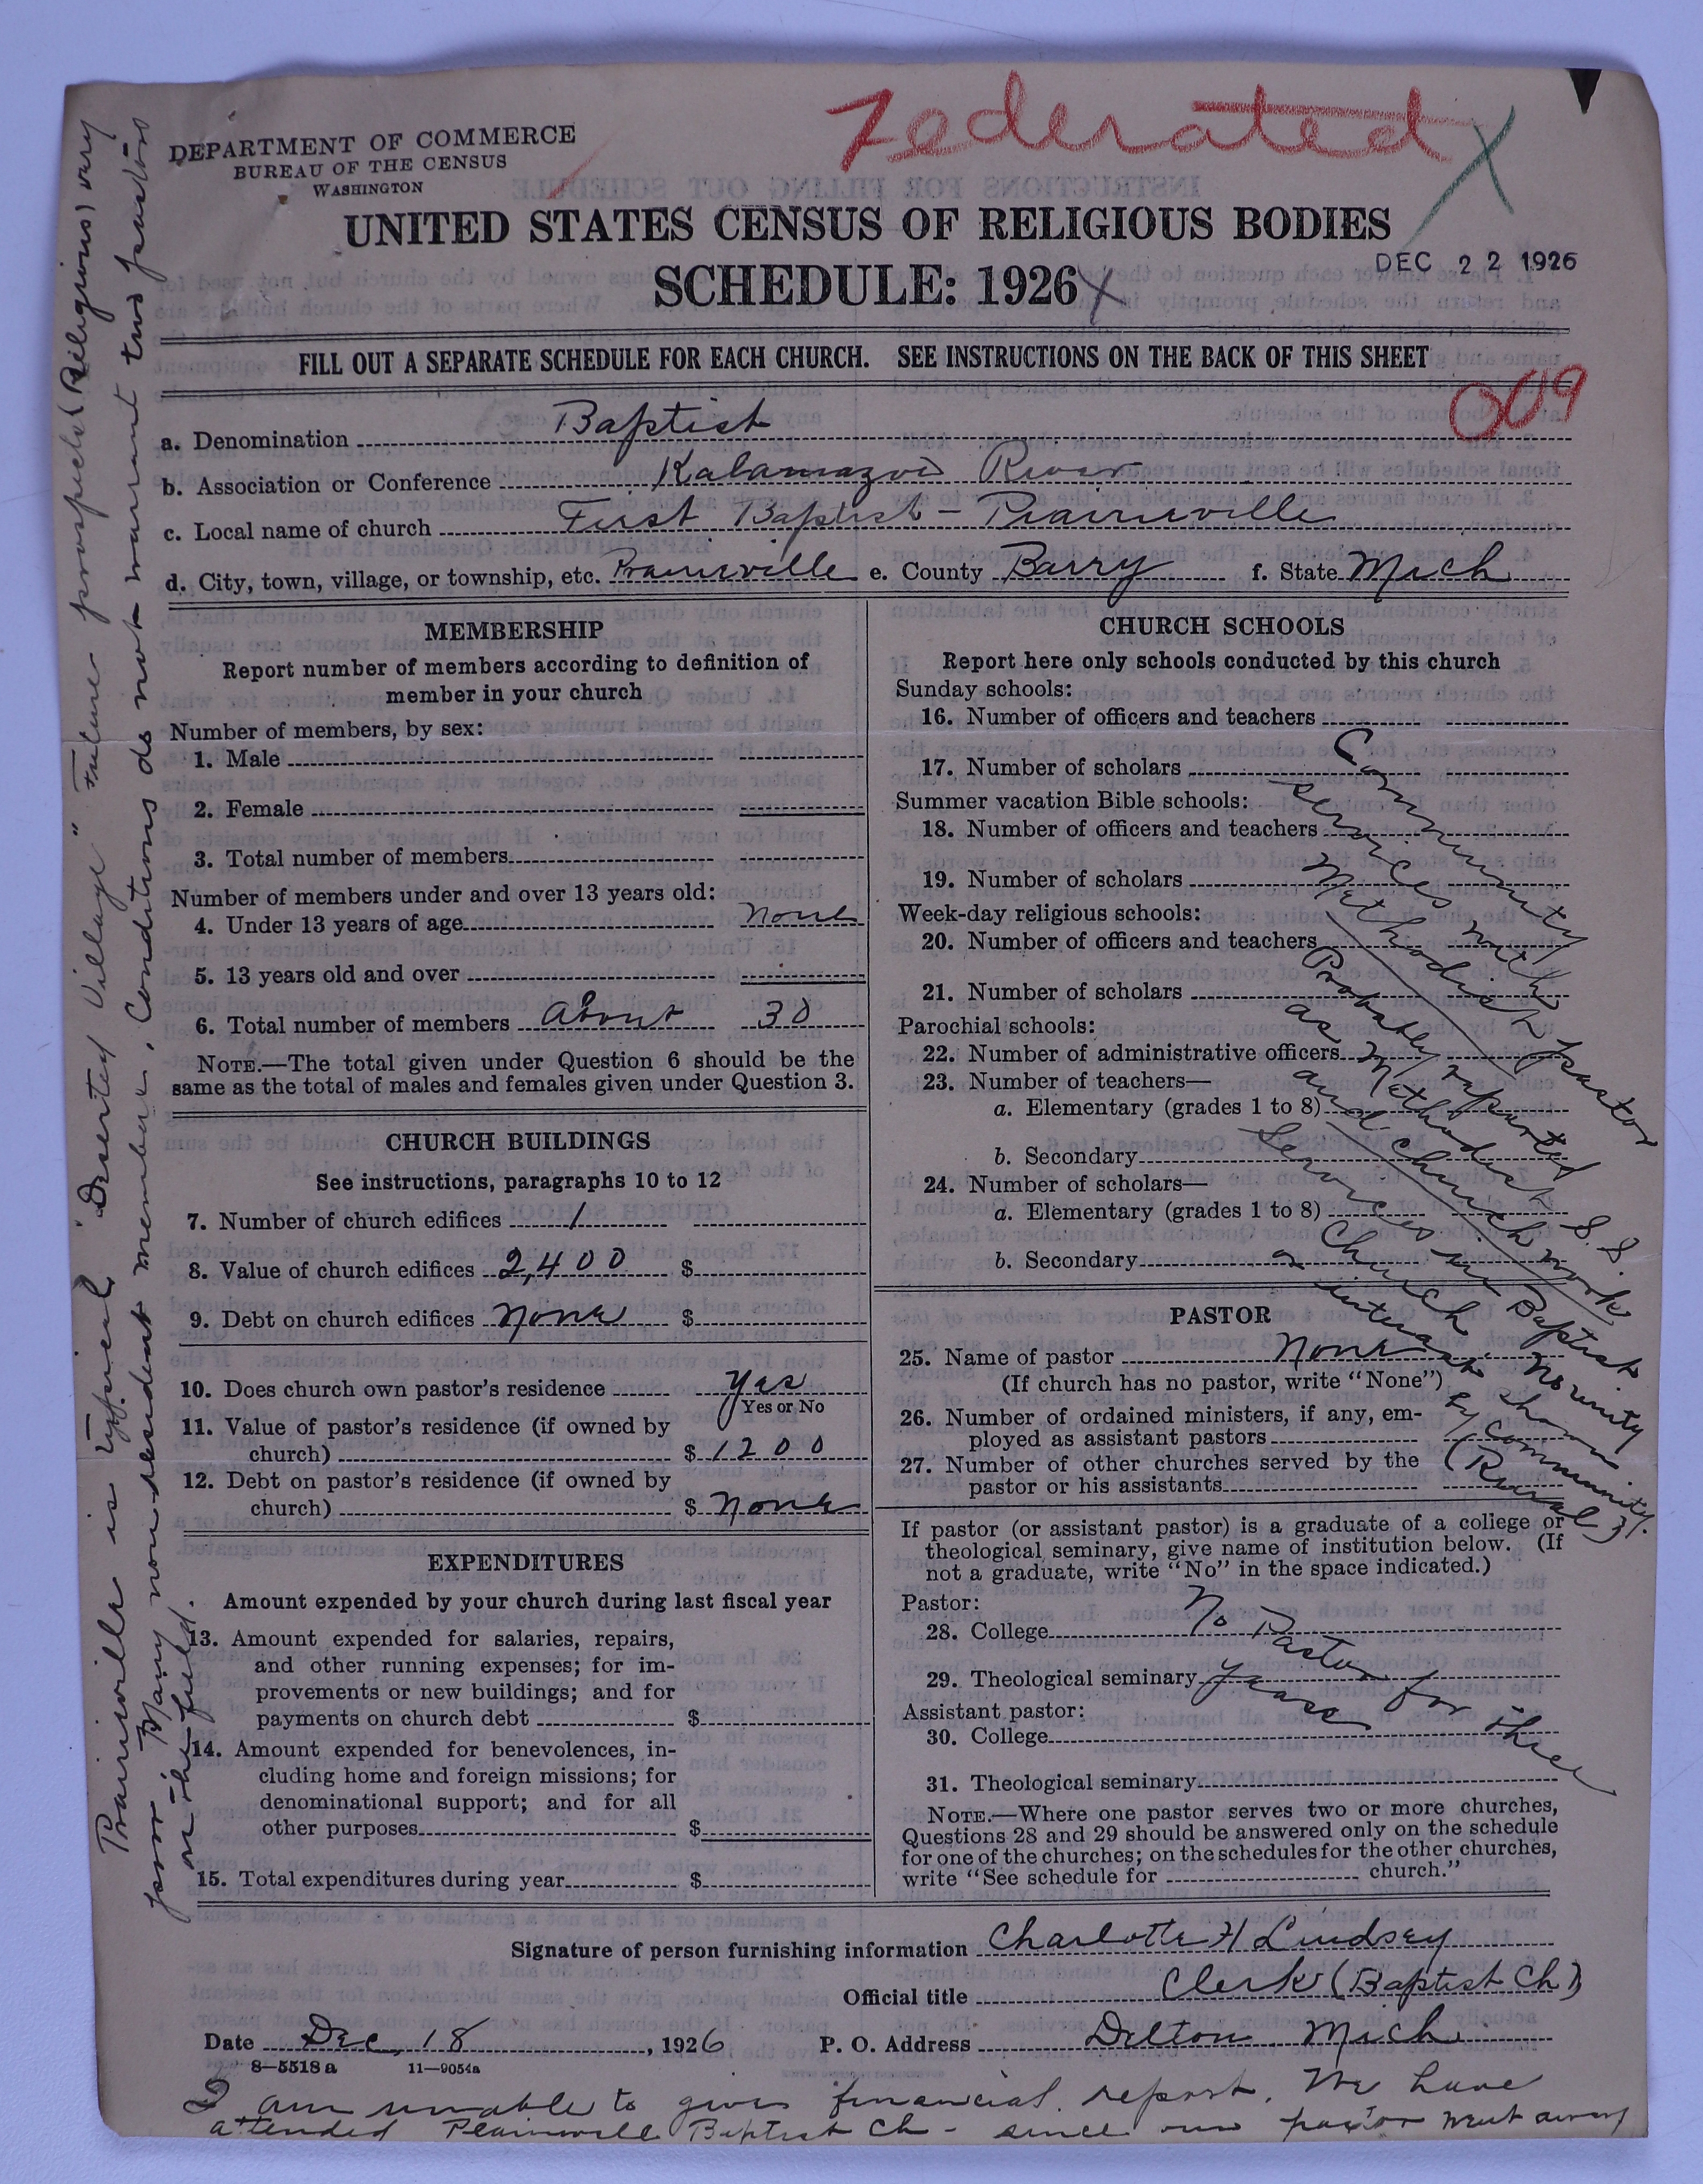 Federated X
DEPARTMENT OF COMMERCE
BUREAU OF THE CENSUS
WASHINGTON
UNITED STATES CENSUS OF RELIGIOUS BODIES
SCHEDULE: 1926 X
DEC 22 1926
FILL OUT A SEPARATE SCHEDULE FOR EACH CHURCH. SEE INSTRUCTIONS ON THE BACK OF THIS SHEET
009
a. Denomination Baptist
b. Association or Conference Kalamazoo River
c. Local name of church First Baptist - Prairieville
d. City, town, village, or township, etc. Prairieville e. County Barry f. State Mich
MEMBERSHIP
Report number of members according to definition of
member in your church
Number of members, by sex:
1. Male
2. Female
3. Total number of members
Number of members under and over 13 years old:
4. Under 13 years of age None
5. 13 years old and over
6. Total number of members about 30
NOTE.—The total given under Question 6 should be the
same as the total of males and females given under Question 3.
CHURCH BUILDINGS
See instructions, paragraphs 10 to 12
7. Number of church edifices 1
8. Value of church edifices 2,400 $
9. Debt on church edifices None $
10. Does church own pastor's residence Yes
Yes or No
11. Value of pastor's residence (if owned by
church) $ 1200
12. Debt on pastor's residence (if owned by
church) $ None
EXPENDITURES
Amount expended by your church during last fiscal year
13. Amount expended for salaries, repairs,
and other running expenses; for im-
provements or new buildings; and for
payments on church debt $
14. Amount expended for benevolences, in-
cluding home and foreign missions; for
denominational support; and for all
other purposes $
15. Total expenditures during year $
CHURCH SCHOOLS
Report here only schools conducted by this church
Sunday schools:
16. Number of officers and teachers
17. Number of scholars
Summer vacation Bible schools:
18. Number of officers and teachers
19. Number of scholars
Week-day religious schools:
20. Number of officers and teachers
21. Number of scholars
Parochial schools:
22. Number of administrative officers
23. Number of teachers—
a. Elementary (grades 1 to 8)
b. Secondary
24. Number of scholars—
a. Elementary (grades 1 to 8)
b. Secondary
Community
services with
Methodist pastor
Probably reported
as Methodist S. S
and church work
Services in Baptist
Church No unity
or interest shown
by community.
(Rural)
PASTOR
25. Name of pastor None
(If church has no pastor, write "None")
26. Number of ordained ministers, if any, em-
ployed as assistant pastors
27. Number of other churches served by the
pastor or his assistants
If pastor (or assistant pastor) is a graduate of a college or
theological seminary, give name of institution below. (If
not a graduate, write "No" in the space indicated.)
Pastor:
28. College
29. Theological seminary
No Pastor for three
years
Assistant pastor:
30. College
31. Theological seminary
NOTE.—Where one pastor serves two or more churches,
Questions 28 and 29 should be answered only on the schedule
for one of the churches; on the schedules for the other churches,
write "See schedule for church."
Signature of person furnishing information Charlotte H Lindsey
Official title Clerk (Baptist Ch)
Date Dec, 18, 1926 P. O. Address Delton Mich
8—5518a 11—9054a
I am unable to give financial report. We have
attended Plainwell Baptist Ch - since our pastor went away
Prairieville is typical "Deserted Village" Future prospects (Religious) very
poor Many non-resident members. Conditions do not warrant two pastors
on the field.